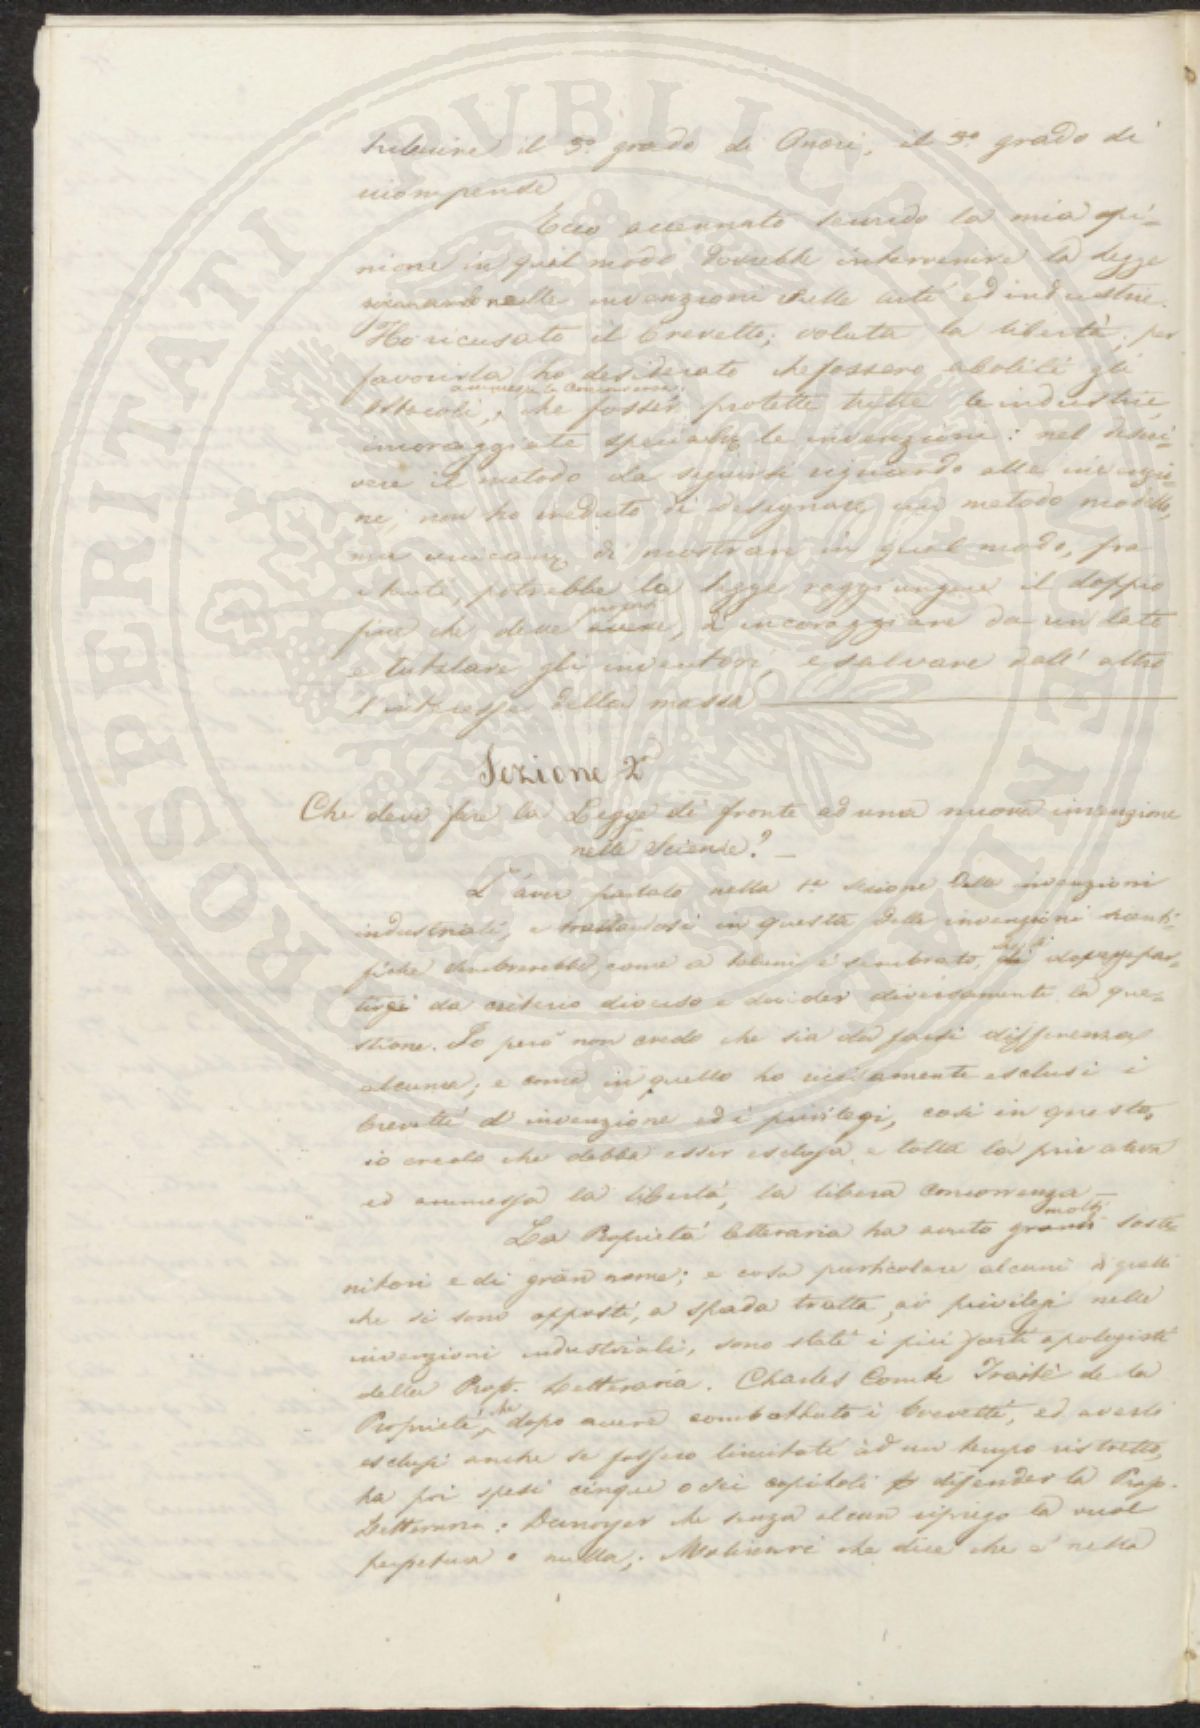 PROSPERITATI PUBLICAE AUGENDAE
tribuire il 3.º grado di Onori, il 3.º grado di
ricompense
Ecco accennato secondo la mia opi-
nione in qual modo dovrebbe intervenire la legge
nelle invenzioni nelle arti ed industrie.
Ho ricusato il brevetto; voluta la libertà; per
favourla ho desiderato che fossero aboliti gli
ammessa la concorrenza;
ostacoli, che fosser protette tutte le industrie,
incoraggiate specialm. le invenzioni: nel descri-
vere il metodo da seguirsi riguardo alle invenzio-
ni, non ho creduto di designare un metodo modello,
ma unicam. di mostrare in qual modo, fra
i tanti, potrebbe la legge raggiungere il doppio
fine che deve avere, d'incoraggiare da un lato
e tutelare gli inventori, e salvare dall'altro
l'interesse della massa
Sezione 2ª
Che deve fare la Legge di fronte ad una nuova invenzione
nelle Scienze? —
L'aver parlato nella 1ª sezione delle invenzioni
industriali, e trattandosi in questa delle invenzioni scienti-
fiche sembrerebbe, come a taluni è sembrato, dover par-
tirsi da criterio diverso e decider diversamente la que-
stione. Io però non credo che sia da farsi differenza
alcuna; e come in quello ho ricisamente esclusi i
brevetti d'invenzione ed i privilegi, così in questo,
io credo che debba esser esclusa e tolta la privativa
ed ammessa la libertà, la libera concorrenza —
molti
La Proprietà letteraria ha avuto grandi soste-
nitori e di gran nome; e cosa particolare alcuni di quelli
che si sono opposti, a spada tratta, ai privilegi nelle
invenzioni industriali, sono stati i più forti apologisti
della Prop. Letteraria. Charles Comte Traité de la
Proprieté, che dopo avere combattuto i brevetti, ed averli
esclusi anche se fossero limitati ad un tempo ristretto,
ha poi spesi cinque o sei capitoli p difender la Prop.
Letteraria: Dunoyer che senza alcun ripiego la vuol
perpetua o nulla; Molinari che dice che è nella